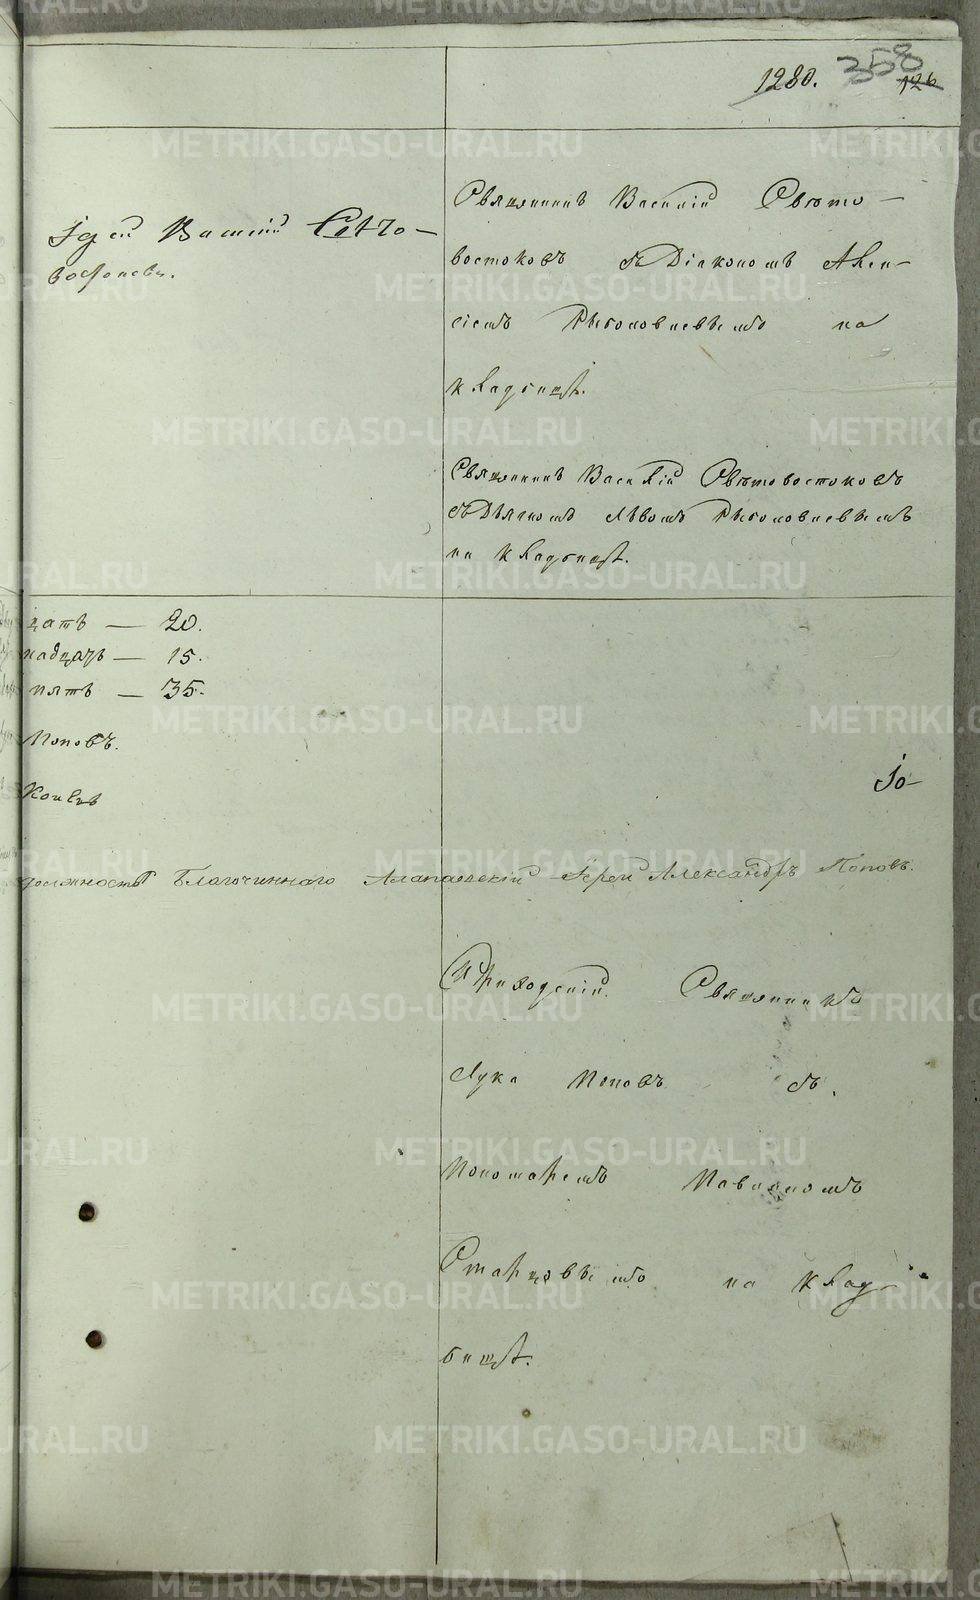 1280. 358 126
Іерей Василій Свѣто-
востоковъ.
Священникъ Василій Свѣто-
востоковъ съ Діакономъ Алек-
сіемъ Рыболовлевымъ на
кладбищѣ.
Священникъ Василій Свѣтовостоковъ
съ Дьячкомъ Львомъ Рыболовлевымъ
на кладбищѣ.
цать — 20.
надцать — 15.
пять — 35.
Поповъ.
Іо-
должность Благочиннаго Алапаевскій Іерей Александръ Поповъ.
Приходскій Священникъ
Лука Поповъ съ
Пономаремъ Павломъ
Старцовымъ на клад-
бищѣ.
METRIKI.GASO-URAL.RU